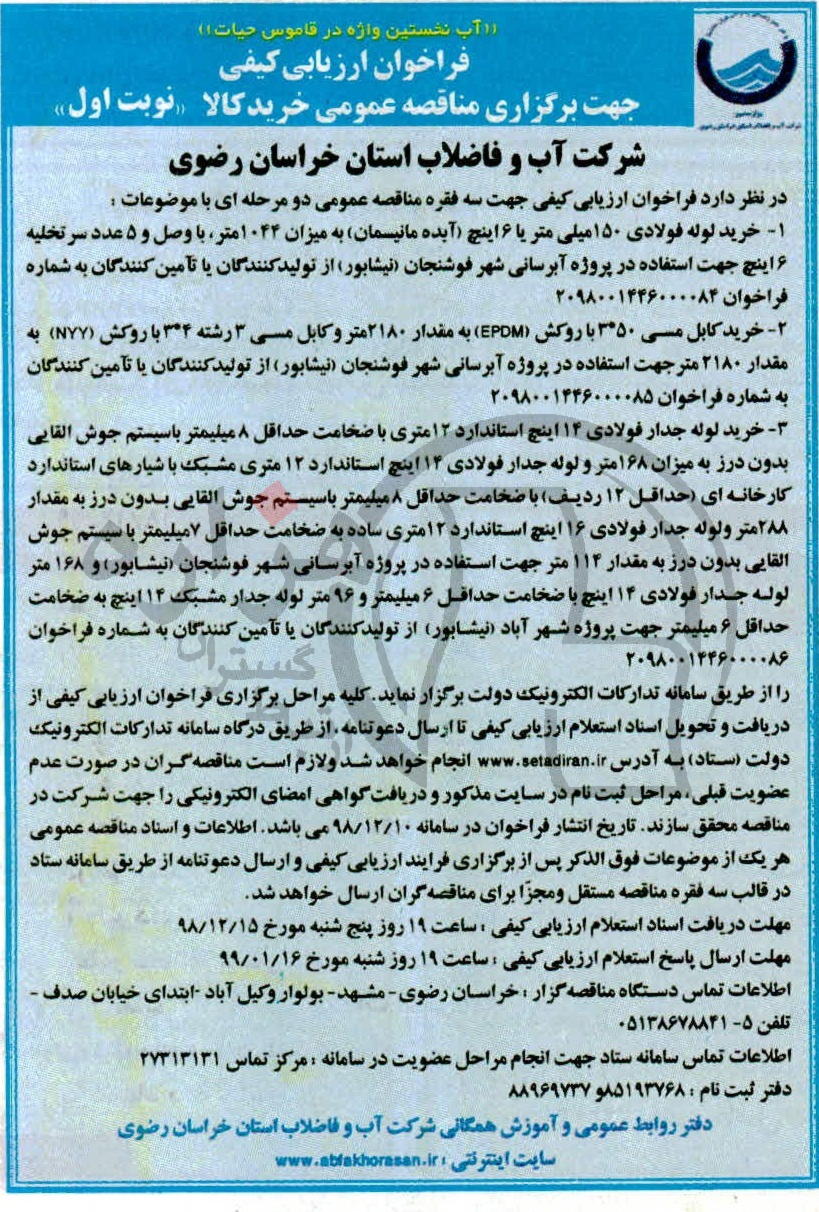 ((آب نخستین واژه در قاموس حیات))
فراخوان ارزیابی کیفی
جهت برگزاری مناقصه عمومی خرید کالا ((نوبت اول))
شرکت آب و فاضلاب استان خراسان رضوی
در نظر دارد فراخوان ارزیابی کیفی جهت سه فقره مناقصه عمومی دو مرحله ای با موضوعات :
۱- خرید لوله فولادی ۱۵۰میلی متر یا ۶اینچ (آبده مانیسمان) به میزان ۱۰۴۴متر، با وصل و ۵ عدد سر تخلیه
۶ اینچ جهت استفاده در پروژه آبرسانی شهر فوشنجان (نیشابور) از تولیدکنندگان یا تآمین کنندگان به شماره
فراخوان ۲۰۹۸۰۰۱۴۴۶۰۰۰۰۸۴
۲- خرید کابل مسی ۵۰*۳ با روکش (EPDM) به مقدار ۲۱۸۰متر و کابل مسی ۳ رشته ۴*۳ با روکش (NYY) به
مقدار ۲۱۸۰ متر جهت استفاده در پروژه آبرسانی شهر فوشنجان (نیشابور) از تولیدکنندگان یا تآمین کنندگان
به شماره فراخوان ۲۰۹۸۰۰۱۴۴۶۰۰۰۰۸۵
۳- خرید لوله جدار فولادی ۱۴ اینچ استاندارد ۱۲متری با ضخامت حداقل ۸ میلیمتر باسیستم جوش القایی
بدون درز به میزان ۱۶۸متر و لوله جدار فولادی ۱۴ اینچ استاندارد ۱۲ متری مشبک با شیارهای استاندارد
کارخانه ای (حداقل ۱۲ ردیف) با ضخامت حداقل ۸ میلیمتر باسیستم جوش القایی بدون درز به مقدار
۲۸۸متر ولوله جدار فولادی ۱۶ اینچ استاندارد ۱۲متری ساده به ضخامت حداقل ۷میلیمتر با سیستم جوش
القایی بدون درز به مقدار ۱۱۴ متر جهت استفاده در پروژه آبرسانی شهر فوشنجان (نیشابور) و ۱۶۸ متر
لوله جدار فولادی ۱۴ اینچ با ضخامت حداقل ۶ میلیمتر و ۹۶ متر لوله جدار مشبک ۱۴ اینچ به ضخامت
حداقل ۶ میلیمتر جهت پروژه شهر آباد (نیشابور) از تولیدکنندگان یا تآمین کنندگان به شماره فراخوان
۲۰۹۸۰۰۱۴۴۶۰۰۰۰۸۶
را از طریق سامانه تدارکات الکترونیک دولت برگزار نماید. کلیه مراحل برگزاری فراخوان ارزیابی کیفی از
دریافت و تحویل اسناد استعلام ارزیابی کیفی تا ارسال دعوتنامه، از طریق درگاه سامانه تدارکات الکترونیک
دولت (ستاد) به آدرس www.setadiran.ir انجام خواهد شد ولازم است مناقصه گران در صورت عدم
عضویت قبلی، مراحل ثبت نام در سایت مذکور و دریافت گواهی امضای الکترونیکی را جهت شرکت در
مناقصه محقق سازند. تاریخ انتشار فراخوان در سامانه ۹۸/۱۲/۱۰ می باشد. اطلاعات و اسناد مناقصه عمومی
هر یک از موضوعات فوق الذکر پس از برگزاری فرایند ارزیابی کیفی و ارسال دعوتنامه از طریق سامانه ستاد
در قالب سه فقره مناقصه مستقل ومجزا برای مناقصه گران ارسال خواهد شد.
مهلت دریافت اسناد استعلام ارزیابی کیفی : ساعت ۱۹ روز پنج شنبه مورخ ۹۸/۱۲/۱۵
مهلت ارسال پاسخ استعلام ارزیابی کیفی : ساعت ۱۹ روز شنبه مورخ ۹۹/۰۱/۱۶
اطلاعات تماس دستگاه مناقصه گزار : خراسان رضوی - مشهد - بولوار وکیل آباد - ابتدای خیابان صدف -
تلفن ۵- ۰۵۱۳۸۶۷۸۸۴۱
اطلاعات تماس سامانه ستاد جهت انجام مراحل عضویت در سامانه : مرکز تماس ۲۷۳۱۳۱۳۱
دفتر ثبت نام : ۸۵۱۹۳۷۶۸و ۸۸۹۶۹۷۳۷
دفتر روابط عمومی و آموزش همگانی شرکت آب و فاضلاب استان خراسان رضوی
سایت اینترنتی : www.abfakhorasan.ir